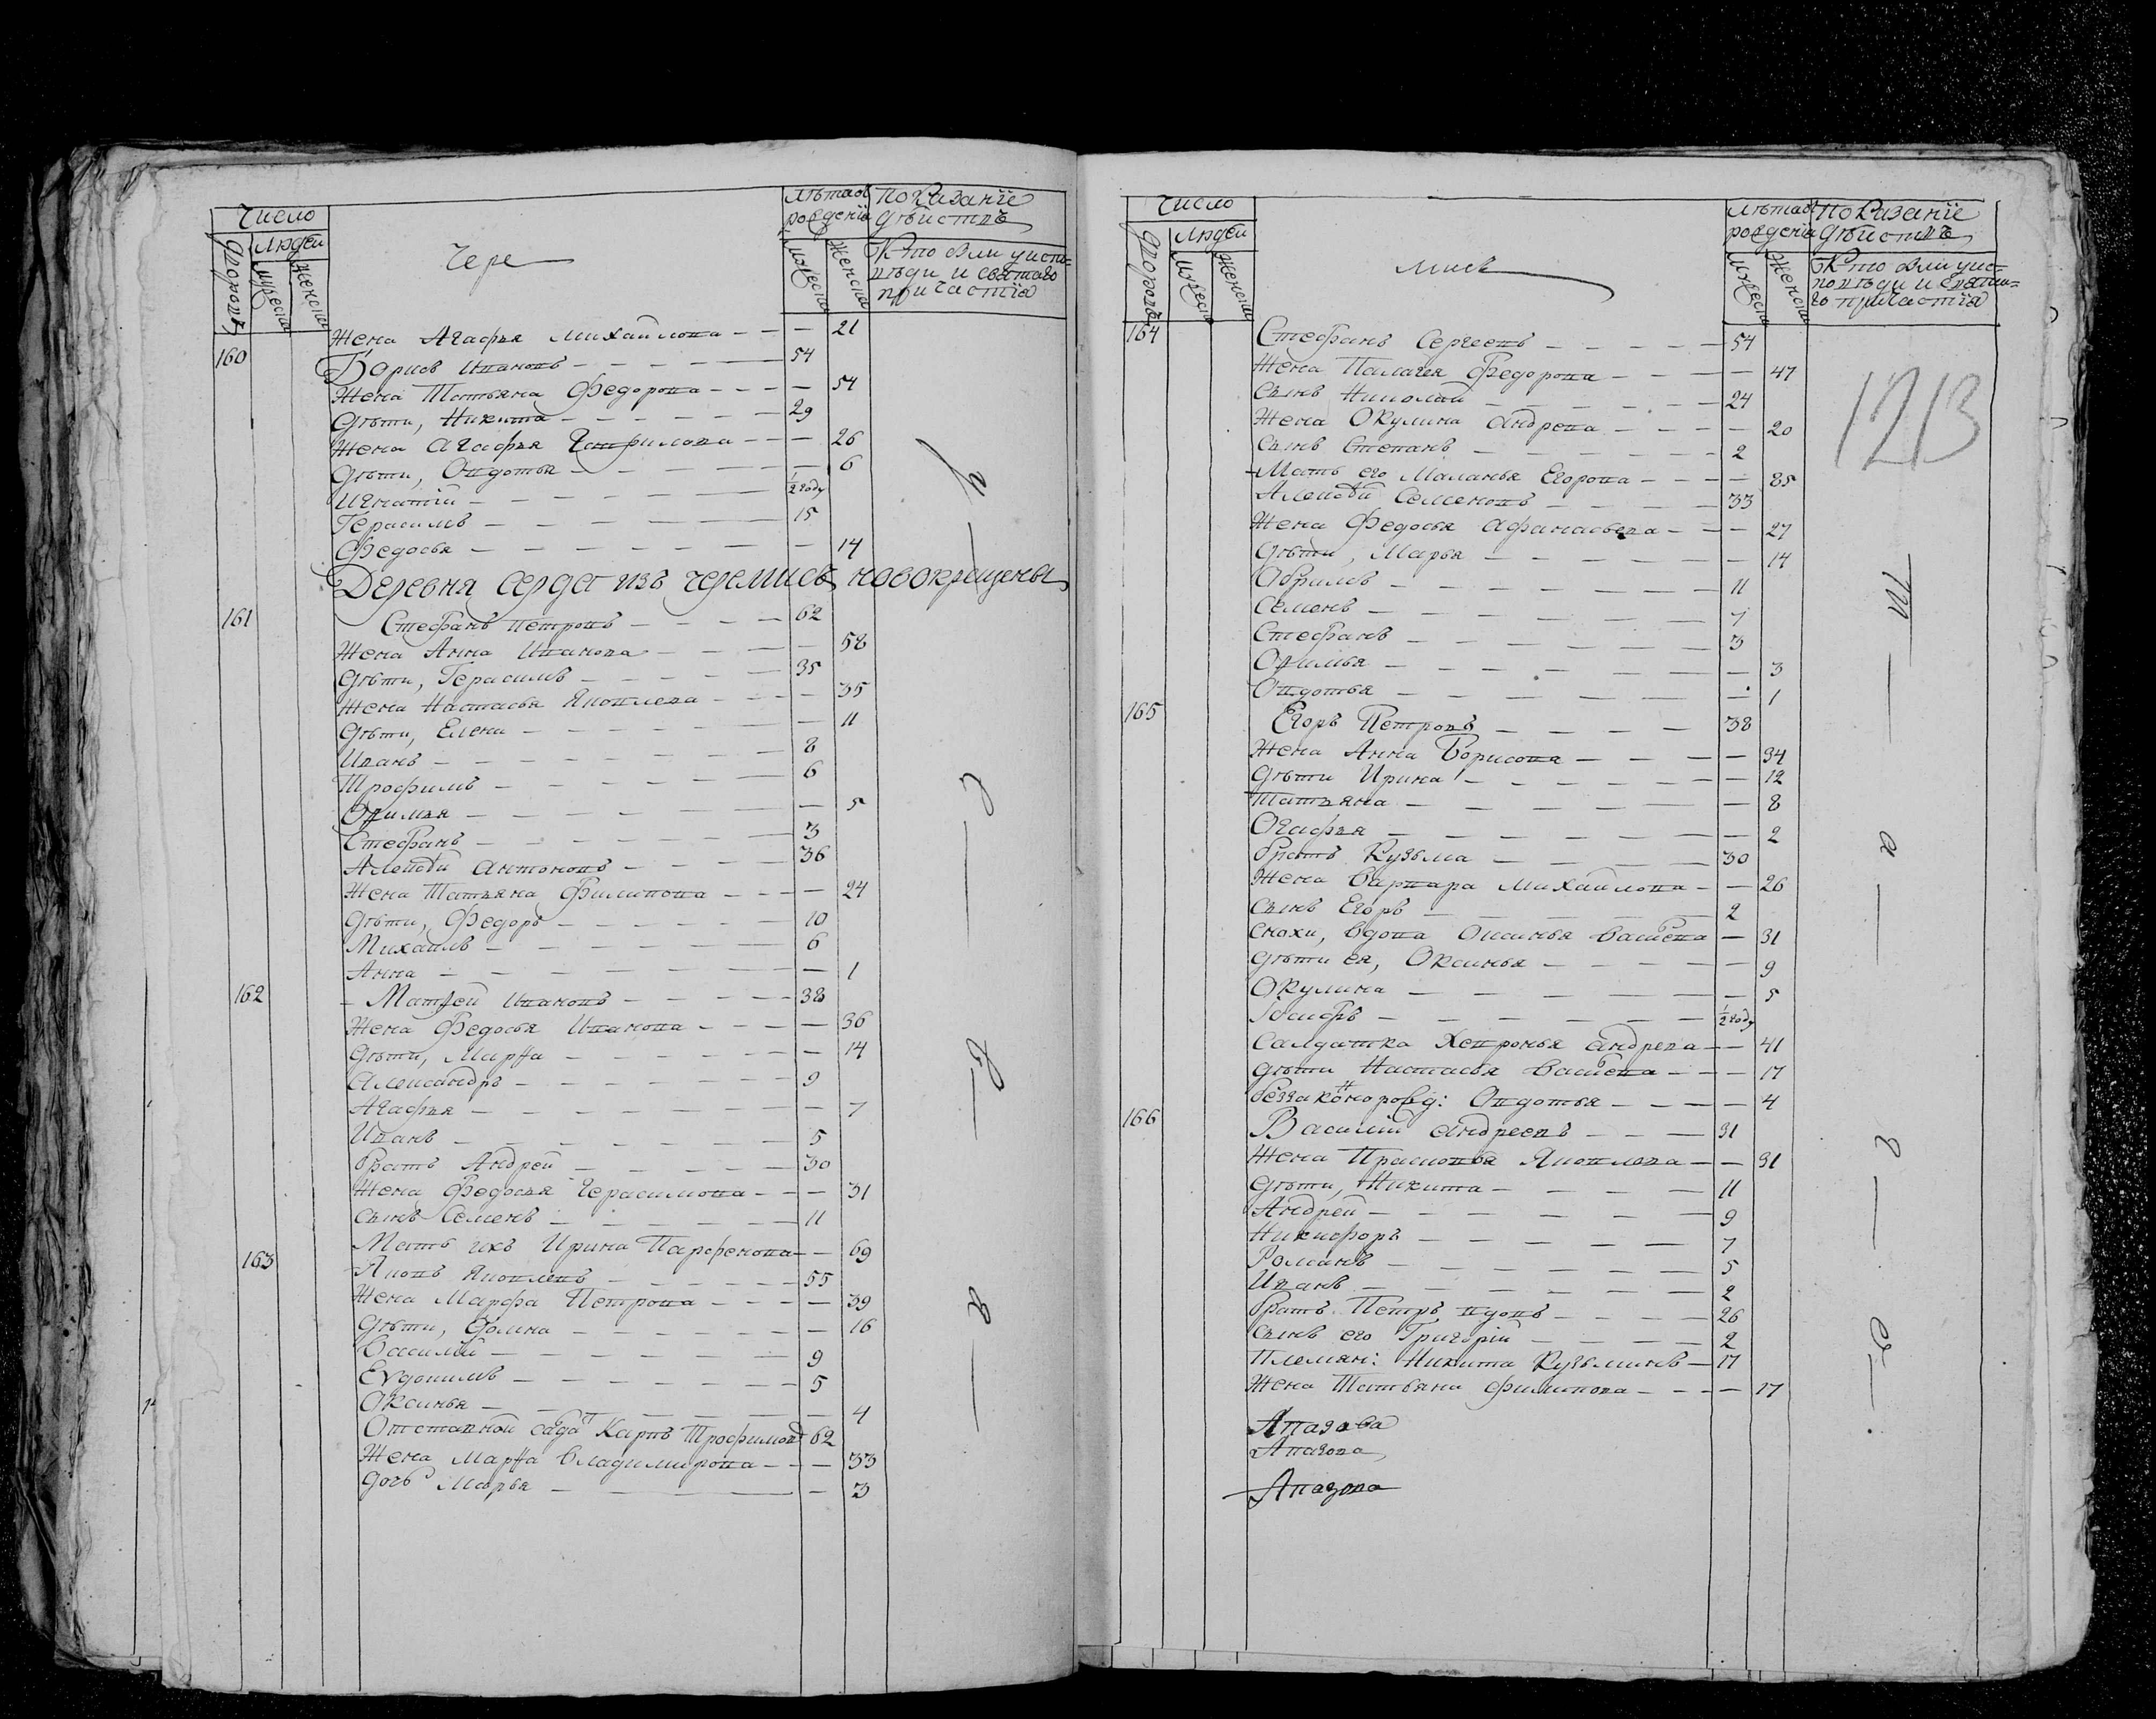 Число
Дворовъ
Людей
Мужеска
Женска
Чере
Лѣта от рожденïя
Мужеска
Женска
Показанïе дѣйствъ
Кто были у исповѣди и святаго причастïя
Жена Агафья Михайлова — 21
160 Борисъ Ивановъ 54
Жена Татьяна Федорова — 54
Дѣти, Никита 29
Жена Агафья Гаврилова — 26
Дѣти, Овдотья — 6
Игнатïй ½ году
Герасимъ 15
Федосья — 14
Деревня Серда изъ черемисъ новокрещены
161 Стефанъ Петровъ 62
Жена Анна Иванова — 58
Дѣти, Герасимъ 35
Жена Настасья Яковлева — 35
Дѣти, Елена — 11
Иванъ 8
Трофимъ 6
Офимья — 5
Стефанъ 3
Алексѣй Антоновъ 36
Жена Татьяна Филипова — 24
Дѣти, Федоръ 10
Михайлъ 6
Анна — 1
162 Матфей Ивановъ 38
Жена Федосья Иванова — 36
Дѣти, Марѳа — 14
Александръ 9
Агафья — 7
Иванъ 5
Братъ Андрей 30
Жена Федосья Герасимова — 31
Сынъ Семенъ 11
Мать ихъ Ирина Парфенова — 69
163 Яковъ Яковлевъ 55
Жена Марфа Петрова — 39
Дѣти, — 16
Василïй 9
Евдокимъ 5
Оксинья — 4
Отставной Карпъ Трофимовъ 62
Жена Марѳа Владимирова — 33
Дочь Марья — 3
Число
Дворовъ
Людей
Мужеска
Женска
мисъ
Лѣта от рожденïя
Мужеска
Женска
Показанïе дѣйствъ
Кто были у исповѣди и святаго причастïя
1213
164 Стефанъ Сергеевъ 54
Жена Палагея Федорова — 47
Сынъ Николай 24
Жена Окулина Андрева — 20
Сынъ Степанъ 2
Мать его Маланья Егорова — 85
Алексѣй Семеновъ 33
Жена Федосья Афанасьева — 27
Дѣти, Марья — 14
Обрамъ 11
Семенъ 7
Стефанъ 3
Офимья — 3
Овдотья — 1
165 Егоръ Петровъ 38
Жена Анна Борисова — 34
Дѣти Ирина — 12
Татьяна — 8
Огафья — 2
Братъ Кузьма 30
Жена Варвара Михайлова — 26
Сынъ Егоръ 2
Снохи, вдова Оксинья Васиева — 31
Дѣти ея, Оксинья — 9
Окулина — 5
Iосифъ ½ году
Салдатка Хевронья Андрева — 41
Дѣти Настасья Васиева — 17
беззаконорожд: Овдотья — 4
166 Василïй Андреевъ 31
Жена Прасковья Яковлева — 31
Дѣти, Никита 11
Андрей 9
Никифоръ 7
Романъ 5
Иванъ 2
Братъ Петръ вдовъ 26
Сынъ его Григорïй 2
Племян: Никита Кузьминъ 17
Жена Татьяна Филипова — 17
Апазова
Апазова
Апазова